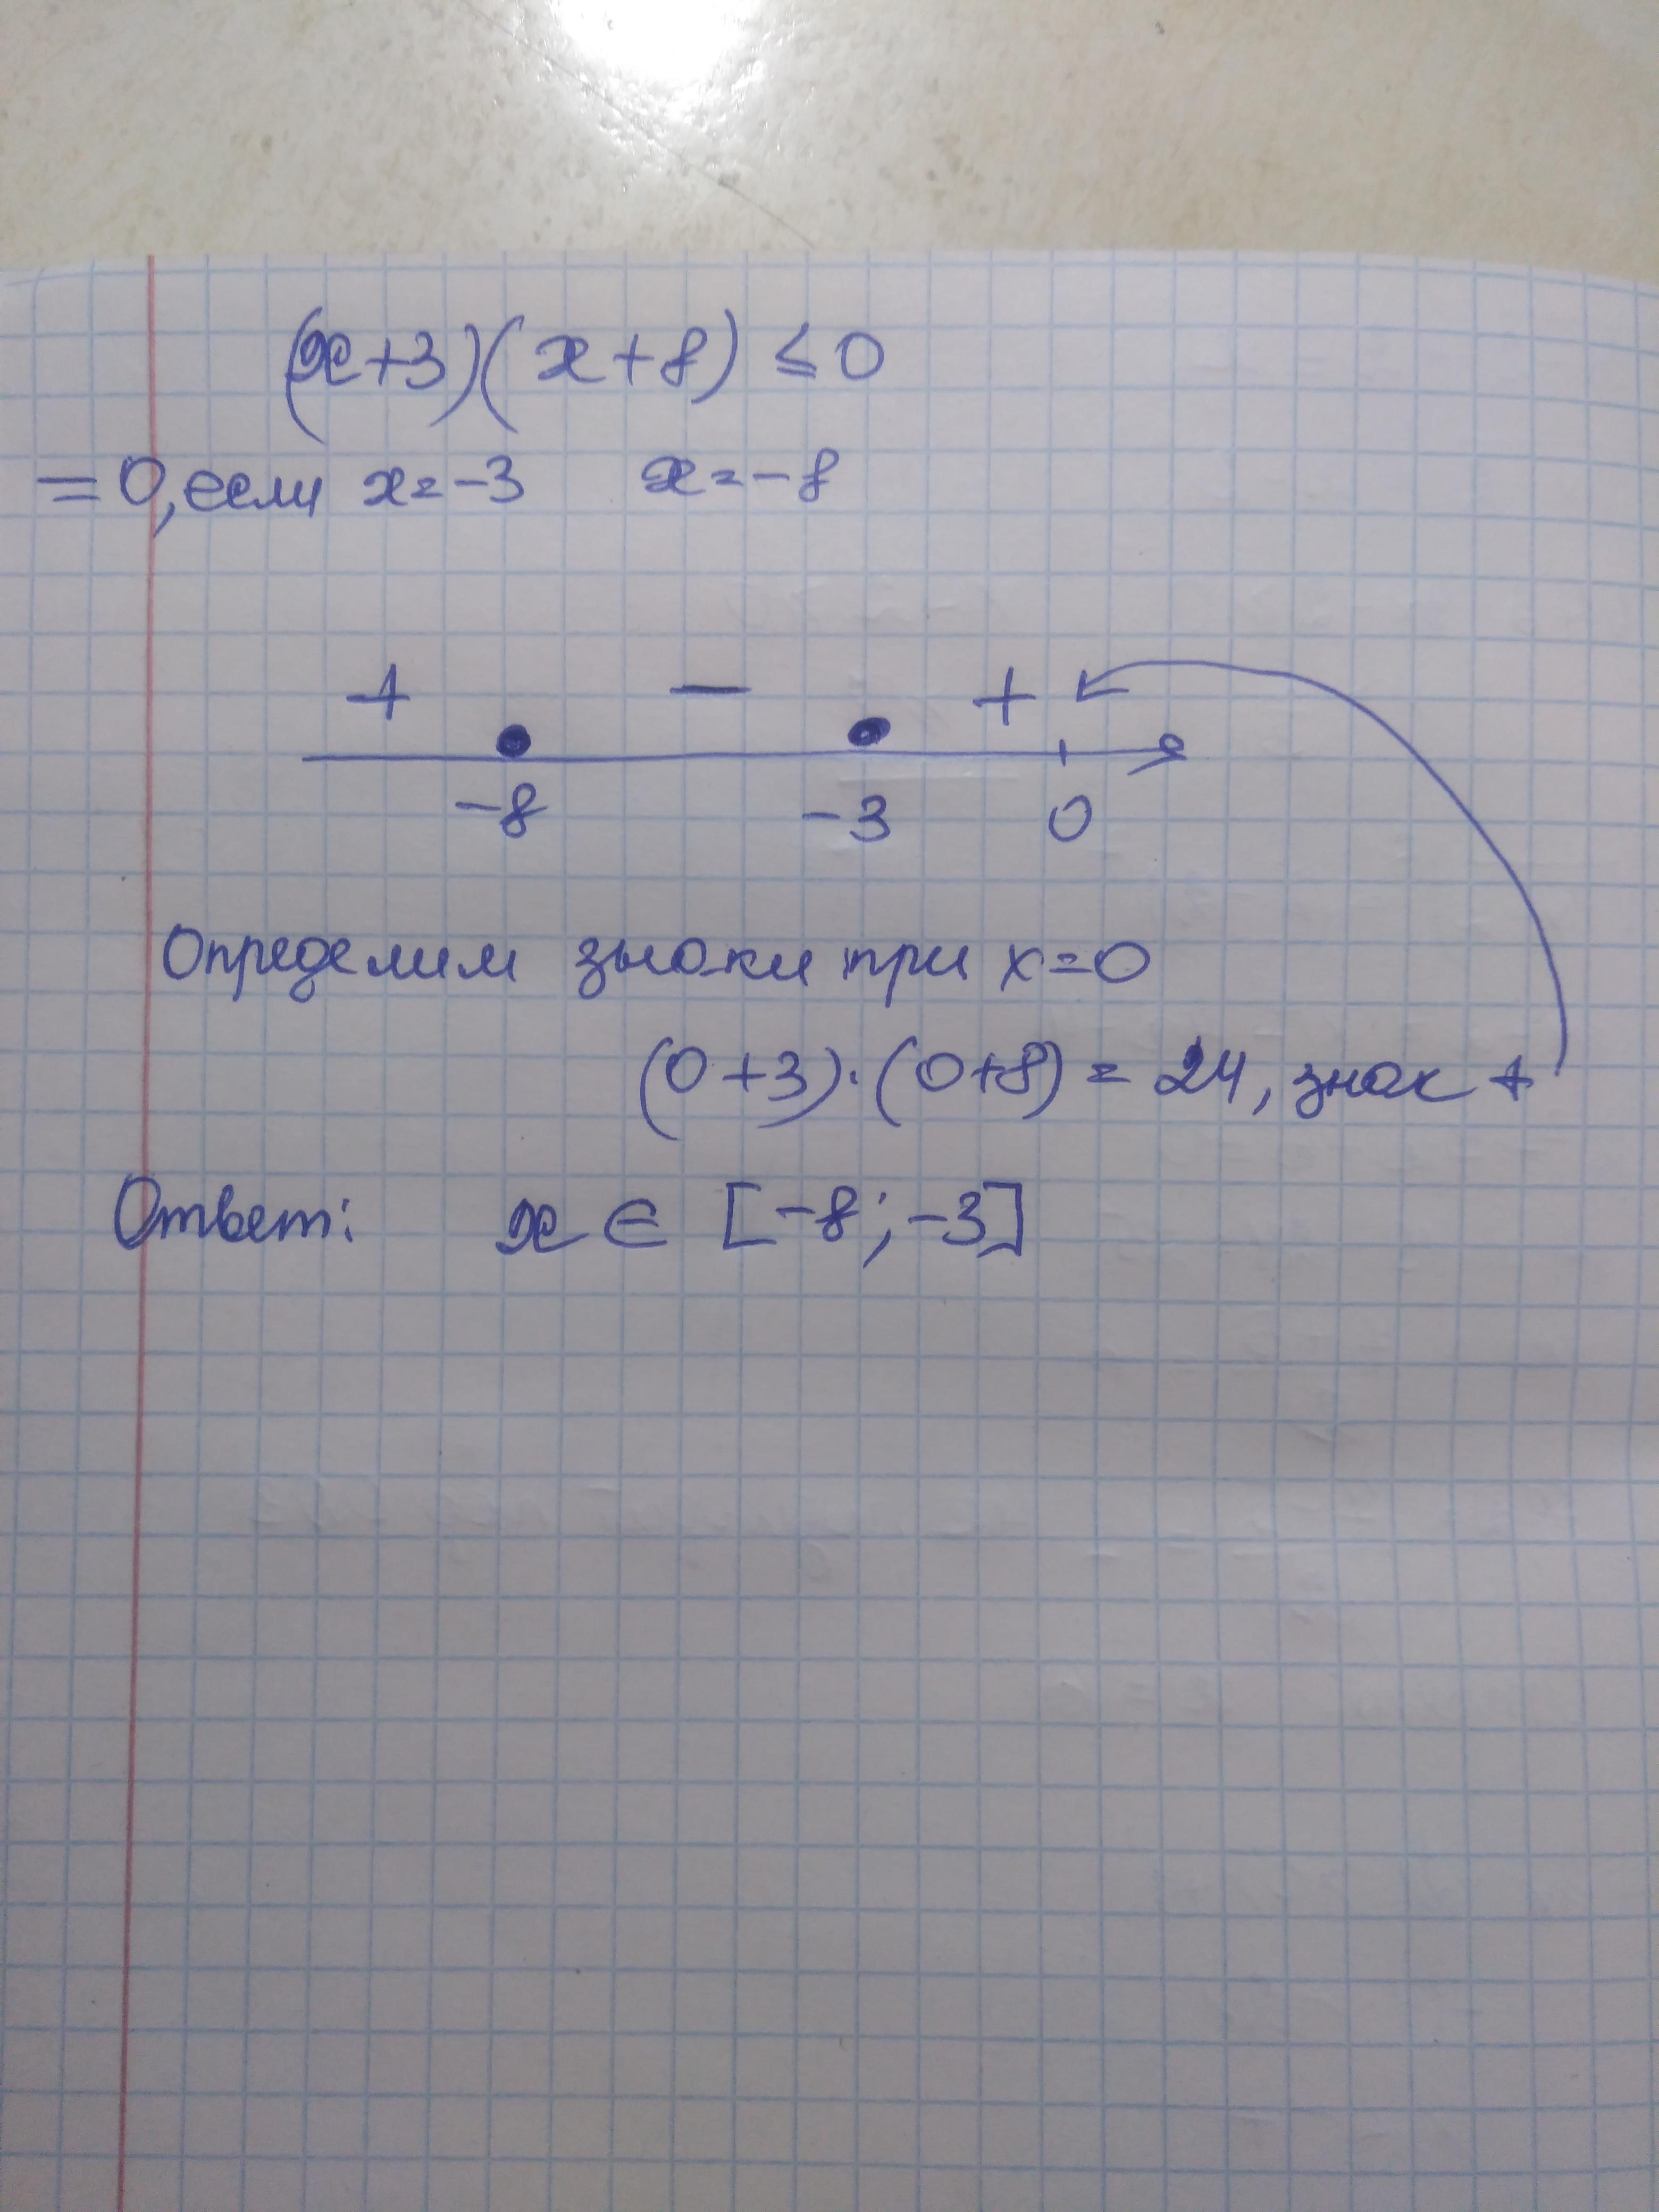 (x+3)(x+8) ≤ 0
= 0, если x = -3 x = -8
+ − +
-8 -3 0
Определим знаки при x=0
(0+3)·(0+8) = 24, знак +
Ответ: x ∈ [-8; -3]